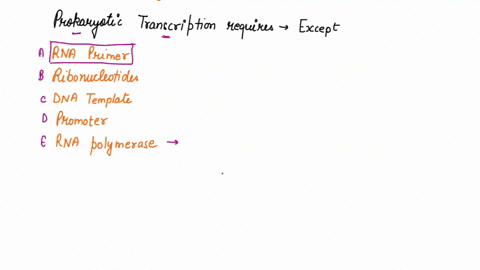 Prokaryotic Transcription requires → Except
A RNA Primer
B Ribonucleotides
C DNA Template
D Promoter
E RNA polymerase →